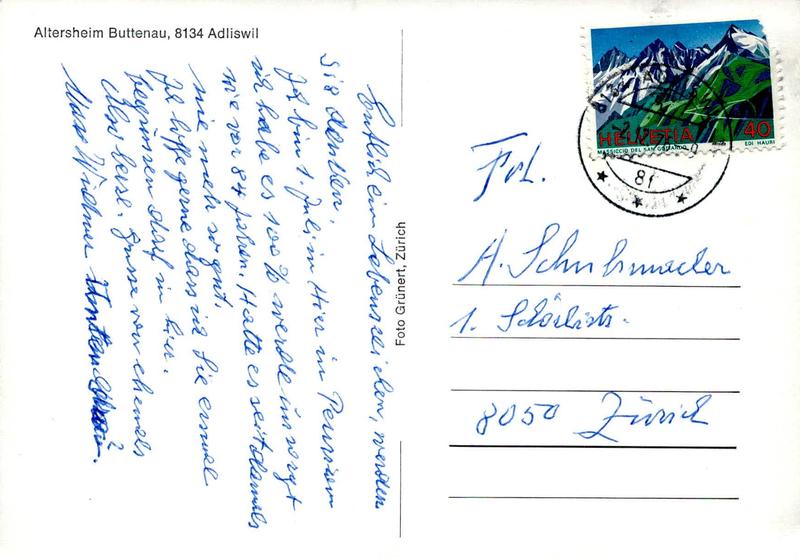 Altersheim Buttenau, 8134 Adliswil
Endlich ein Lebenszeichen, werden
Sie denken.
Ich bin 1. Juli in Hier in Pension
ich habe es 100% werde umsorgt
wie vor 84 Jahren. Hatte es seit damals
nie mehr so gut.
Ich hoffe gerne dass ich Sie einmal
begrüssen darf in hier.
Also beste Grüsse von ehemals
Max Widmer
Foto Grünert, Zürich
HELVETIA 40
MASSICCIO DEL SAN GOTTARDO EDI HAURI
8134
Frl.
A. Schuhmacher
1. Schörlistr.
8050 Zürich